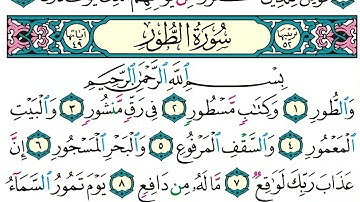 ترتيبها ٥٢ سُورَةُ الطُّورِ آياتها ٤٩
بِسْمِ اللَّهِ الرَّحْمَٰنِ الرَّحِيمِ
وَالطُّورِ ١ وَكِتَابٍ مَّسْطُورٍ ٢ فِي رَقٍّ مَّنشُورٍ ٣ وَالْبَيْتِ
الْمَعْمُورِ ٤ وَالسَّقْفِ الْمَرْفُوعِ ٥ وَالْبَحْرِ الْمَسْجُورِ ٦ إِنَّ
عَذَابَ رَبِّكَ لَوَاقِعٌ ٧ مَّا لَهُ مِن دَافِعٍ ٨ يَوْمَ تَمُورُ السَّمَاءُ